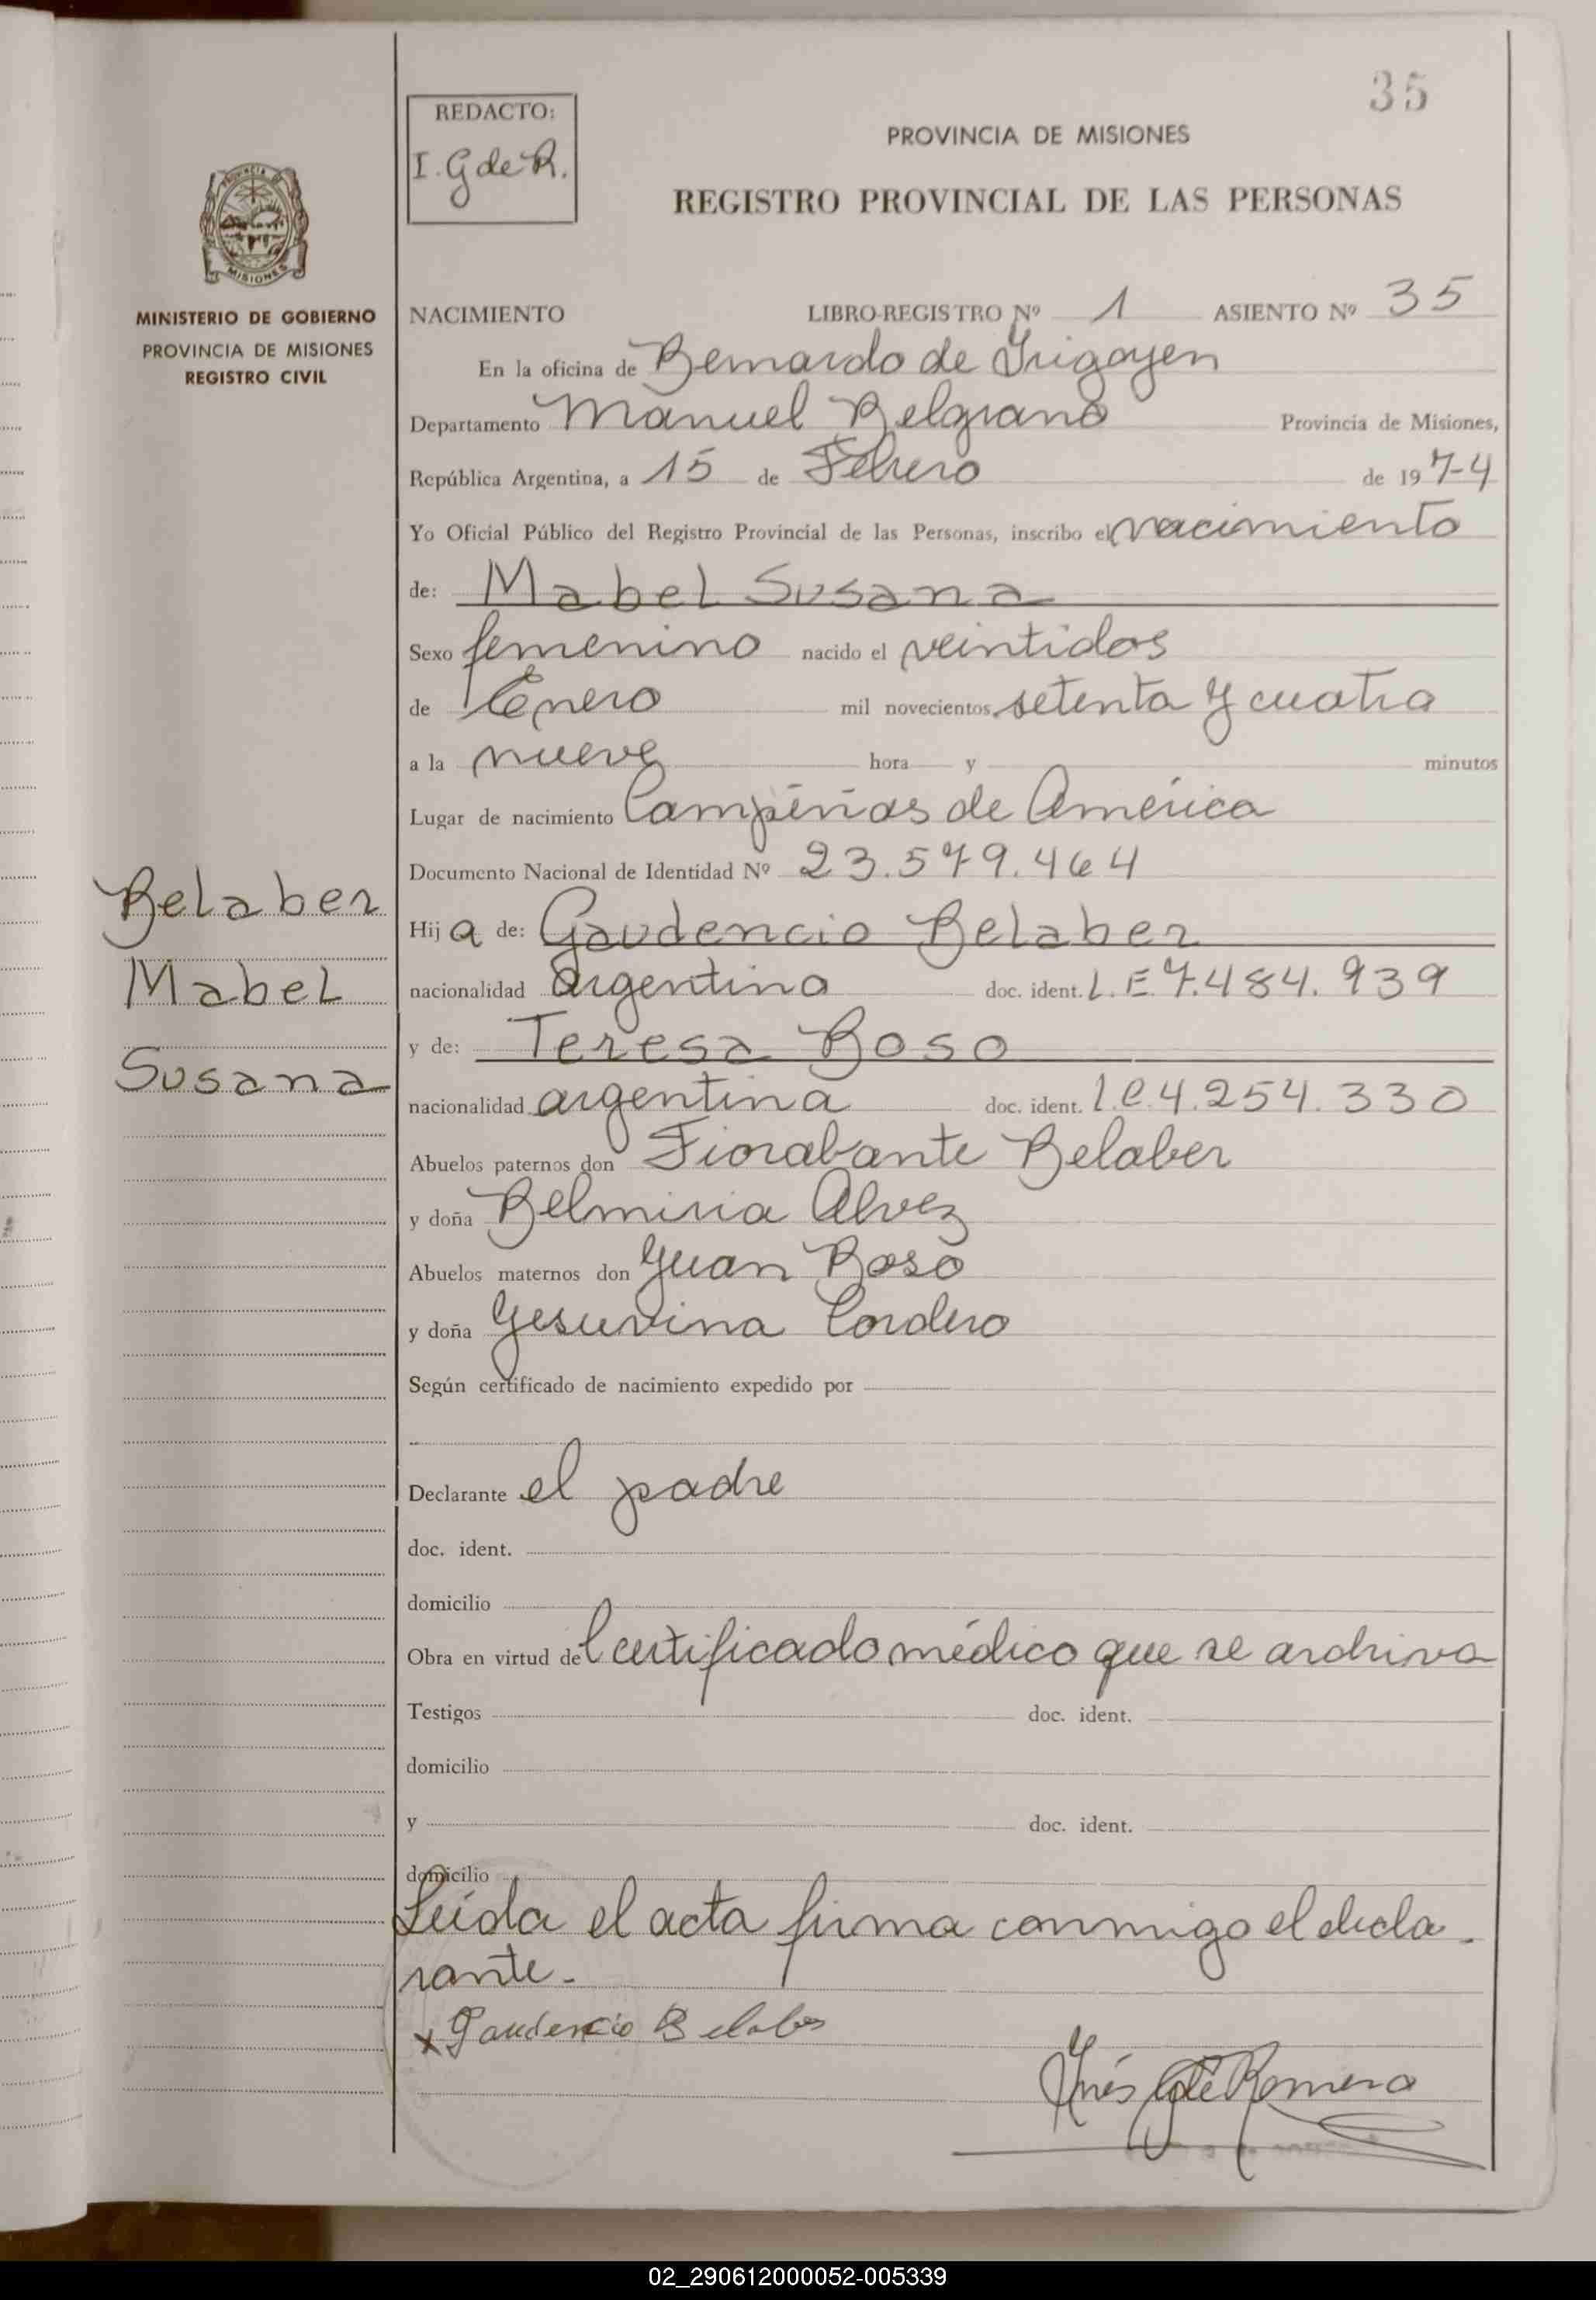 35
REDACTO:
I. G de R.
PROVINCIA DE MISIONES
REGISTRO PROVINCIAL DE LAS PERSONAS
PROVINCIA DE
MISIONES
MINISTERIO DE GOBIERNO
PROVINCIA DE MISIONES
REGISTRO CIVIL
NACIMIENTO LIBRO-REGISTRO Nº 1 ASIENTO Nº 35
En la oficina de Bernardo de Irigoyen
Departamento Manuel Belgrano Provincia de Misiones,
República Argentina, a 15 de Febrero de 1974
Yo Oficial Público del Registro Provincial de las Personas, inscribo el nacimiento
de: Mabel Susana
Sexo femenino nacido el veintidos
de Enero mil novecientos setenta y cuatro
a la nueve hora y minutos
Lugar de nacimiento Campiñas de América
Documento Nacional de Identidad Nº 23.579.464
Hija de: Gaudencio Belaber
nacionalidad argentino doc. ident. L.E. 7.484.939
y de: Teresa Boso
nacionalidad argentina doc. ident. l.c. 4.254.330
Abuelos paternos don Fiorabante Belaber
y doña Belmiria Alvez
Abuelos maternos don Juan Boso
y doña Jesuvina Cordero
Según certificado de nacimiento expedido por
Declarante el padre
doc. ident.
domicilio
Obra en virtud del certificado médico que se archiva
Testigos doc. ident.
domicilio
y doc. ident.
domicilio
Leída el acta firma conmigo el decla-
rante.-
x Gaudencio Belaber
Inés G de Romero
Belaber
Mabel
Susana
02_290612000052-005339